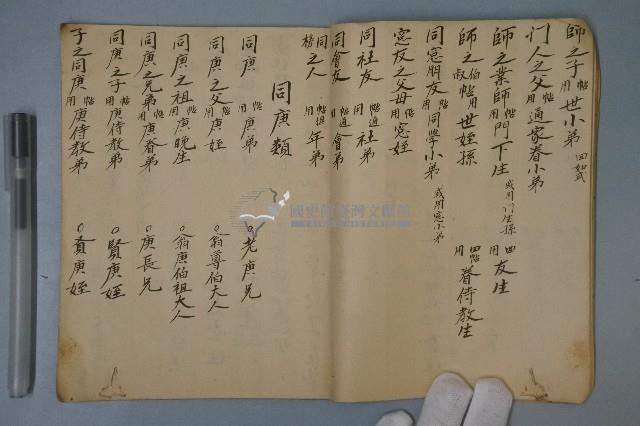 師之子 帖用 世小弟 回如式
门人之父 帖用 通家眷小弟
師之業師 帖用 門下生 或用门生孫 回用 友生
師之伯叔 帖用 世姪孫 回帖用 眷侍教生
同窓朋友 帖用 同學小弟 或用窓小弟
窓友之父母 帖用 窓姪
同社友 帖通 社弟
同會友 帖通 會弟
同榜之人 帖通 年弟
同庚類
同庚 帖用 庚弟 ○老庚兄
同庚之父 帖用 庚姪 ○翁尊伯大人
同庚之祖 帖用 庚晚生 ○翁庚伯祖大人
同庚之兄弟 帖用 庚眷弟 ○庚長兄
同庚之子 帖用 庚侍教弟 ○賢庚姪
子之同庚 帖用 庚侍教弟 庚姪
國史館臺灣文獻館